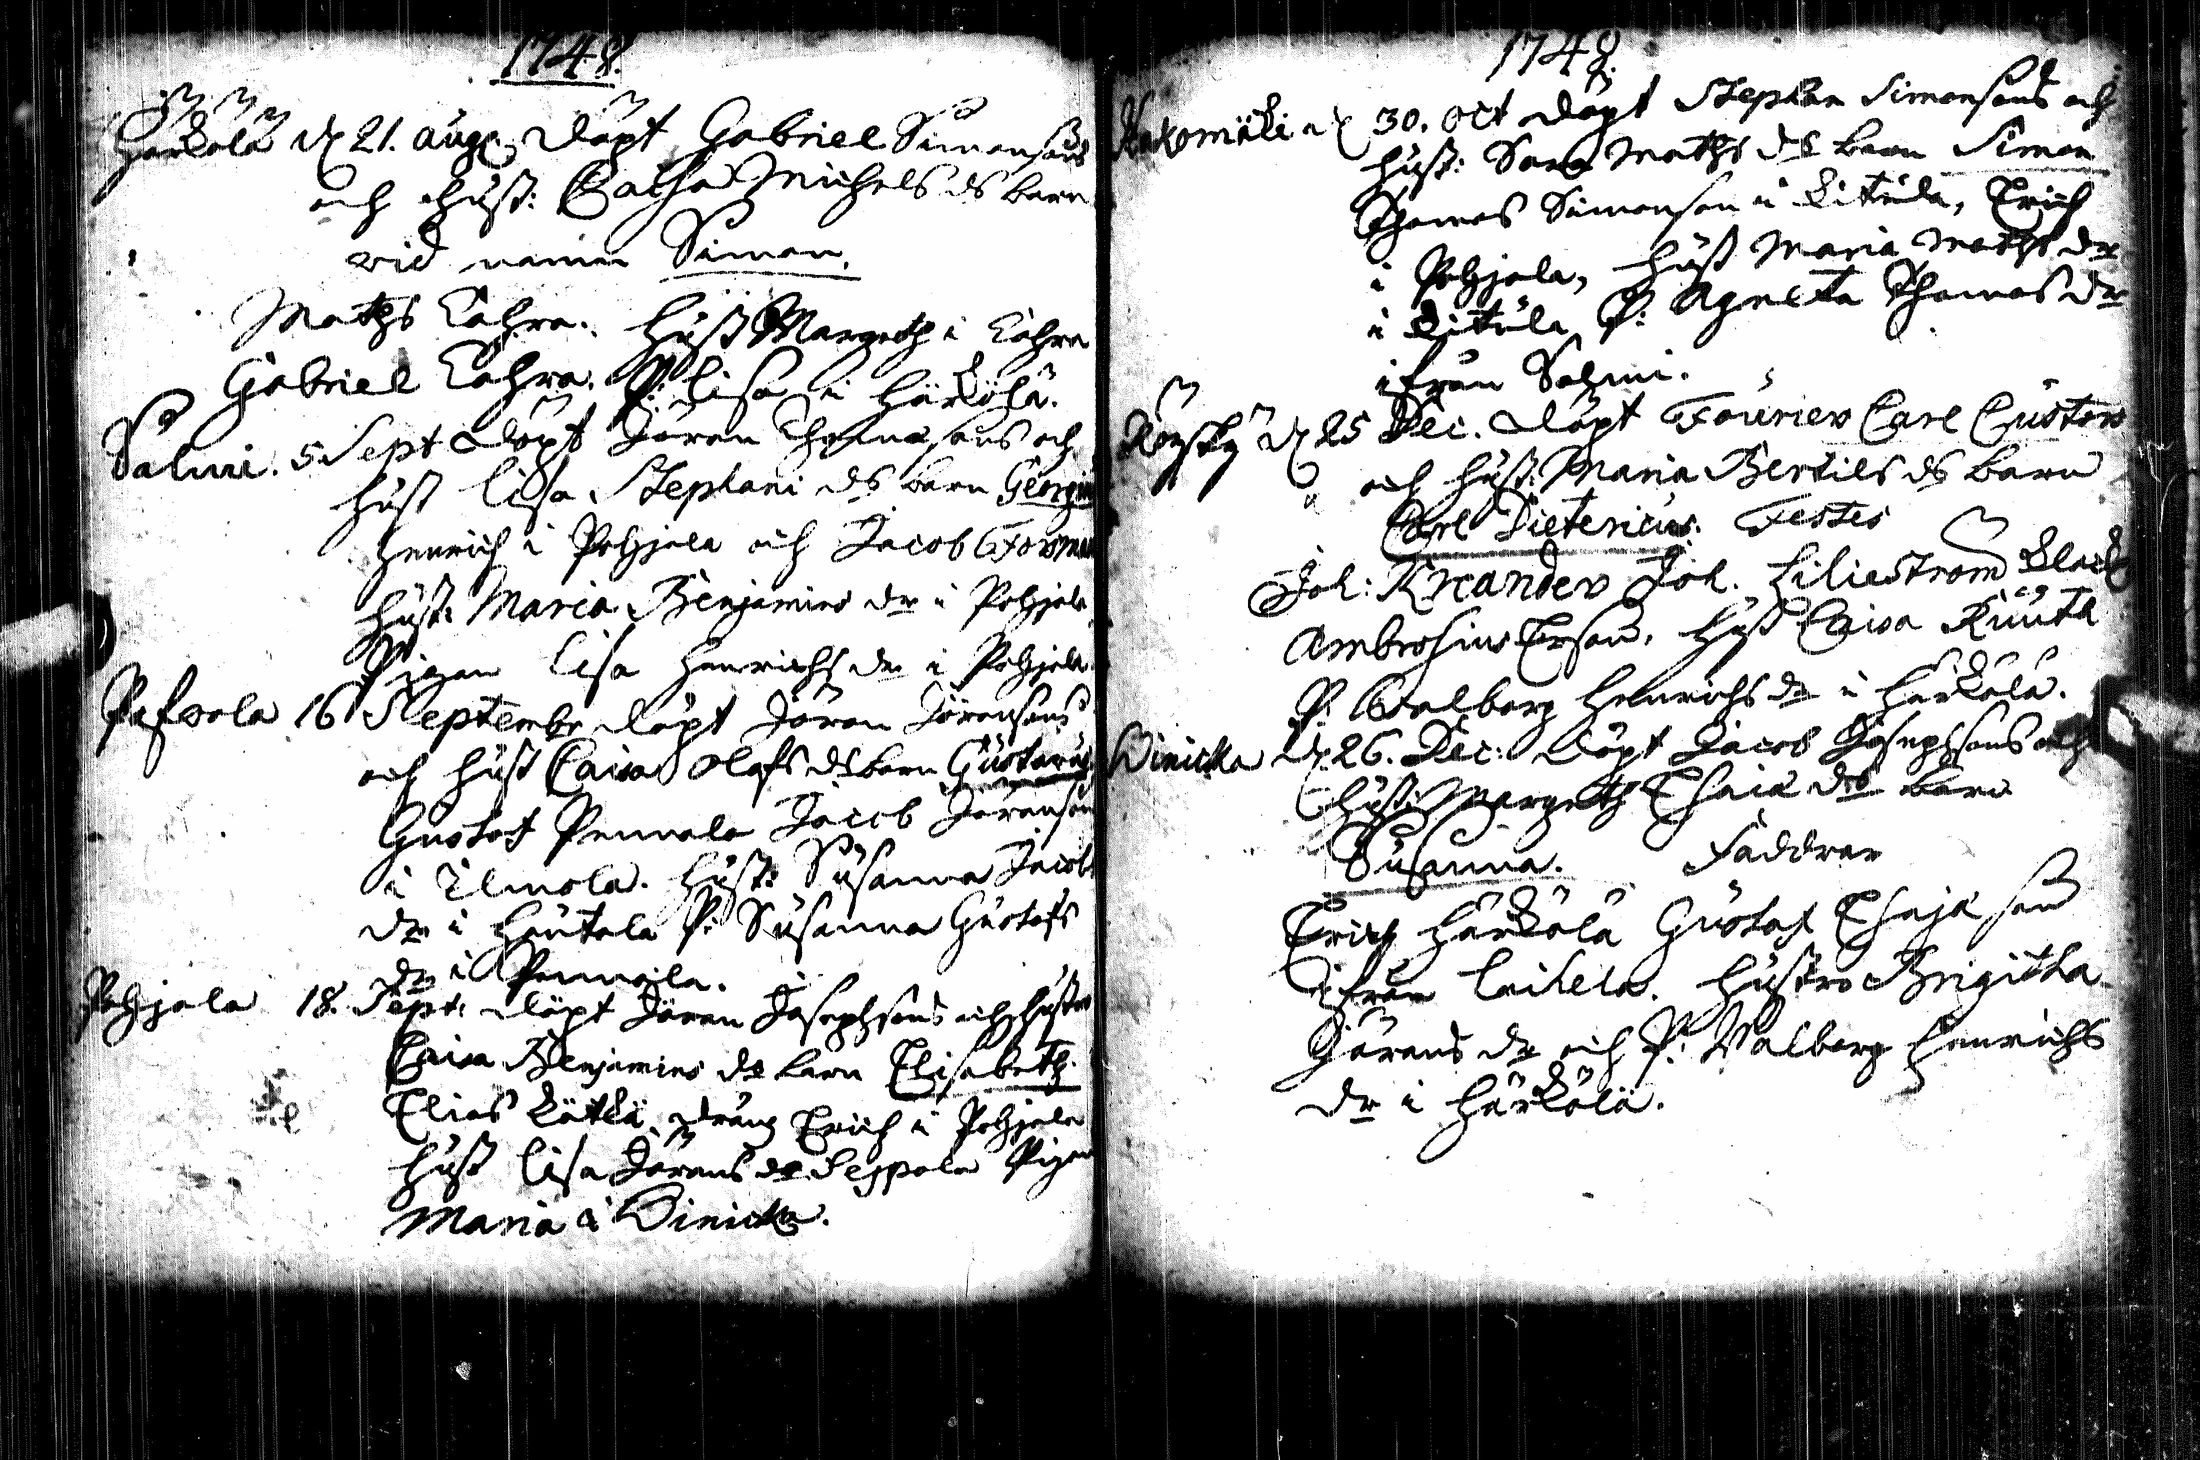 1748.
Härkälä d. 21. aug. döpt Gabriel Simonsons
och hust: Catha Michels ds barn
vid namn Simon.
Matths Lahra. Hust Margeth i Lahra
Gabriel Lahra. P: Lisa i Härkälä.
Salmi. 5 Sept döpt Jöran Thomasons och
hust Lisa Stephani ds barn Georgius
Henrich i Pohjola och Jacob
hust: Maria Benjamins dr i Pohjola
Pigan Lisa Henrichs dr i Pohjola.
Pafvola 16 Septembr döpt Jöran Jöransons
och hust Caisa Olofs ds barn Gustavus
Gustaf Pennala Jacob Jöranson
i Ilmola. hust: Susanna Jacobs
dr i Hautala P: Susanna Gustafs
dr i Pennala.
Pohjola 18. Sept: döpt Jöran Josephsons och hustro
Caisa Benjamins ds barn Elisabeth.
Elias Kötkä, dräng Erich i Pohjola
hust Lisa Jörans dr Seppola Pigan
Maria i Winicka.
1748.
Kakomäki d. 30. Oct döpt Stephan Simonsons och
hust: Sara Matths ds barn Simon
Thomas Simonson i Kitula, Erich
i Pohjola, hust Maria Matths dr
i Kitula P: Agneta Thomas dr
ifrån Salmi.
d. 25 Dec. döpt Fourier Carl Custers
och hust: Maria Bertils ds barn
Carl Dietericus. Testes
Joh: Kreander Joh. Liliestrom
Ambrosius Ersson. hust Caisa Kuuth
P. Walborg Henrichs dr i Härkälä.
Winicka d. 26. Dec: döpt Jacob Josephsons och
hust: Margeth Esaiæ ds barn
Susanna. Faddrar
Erich Härkälä Gustaf Esajæ son
ifrån Laihela. hustro Brigitha
Jörans dr och P: Walborg Henrichs
dr i Härkälä.